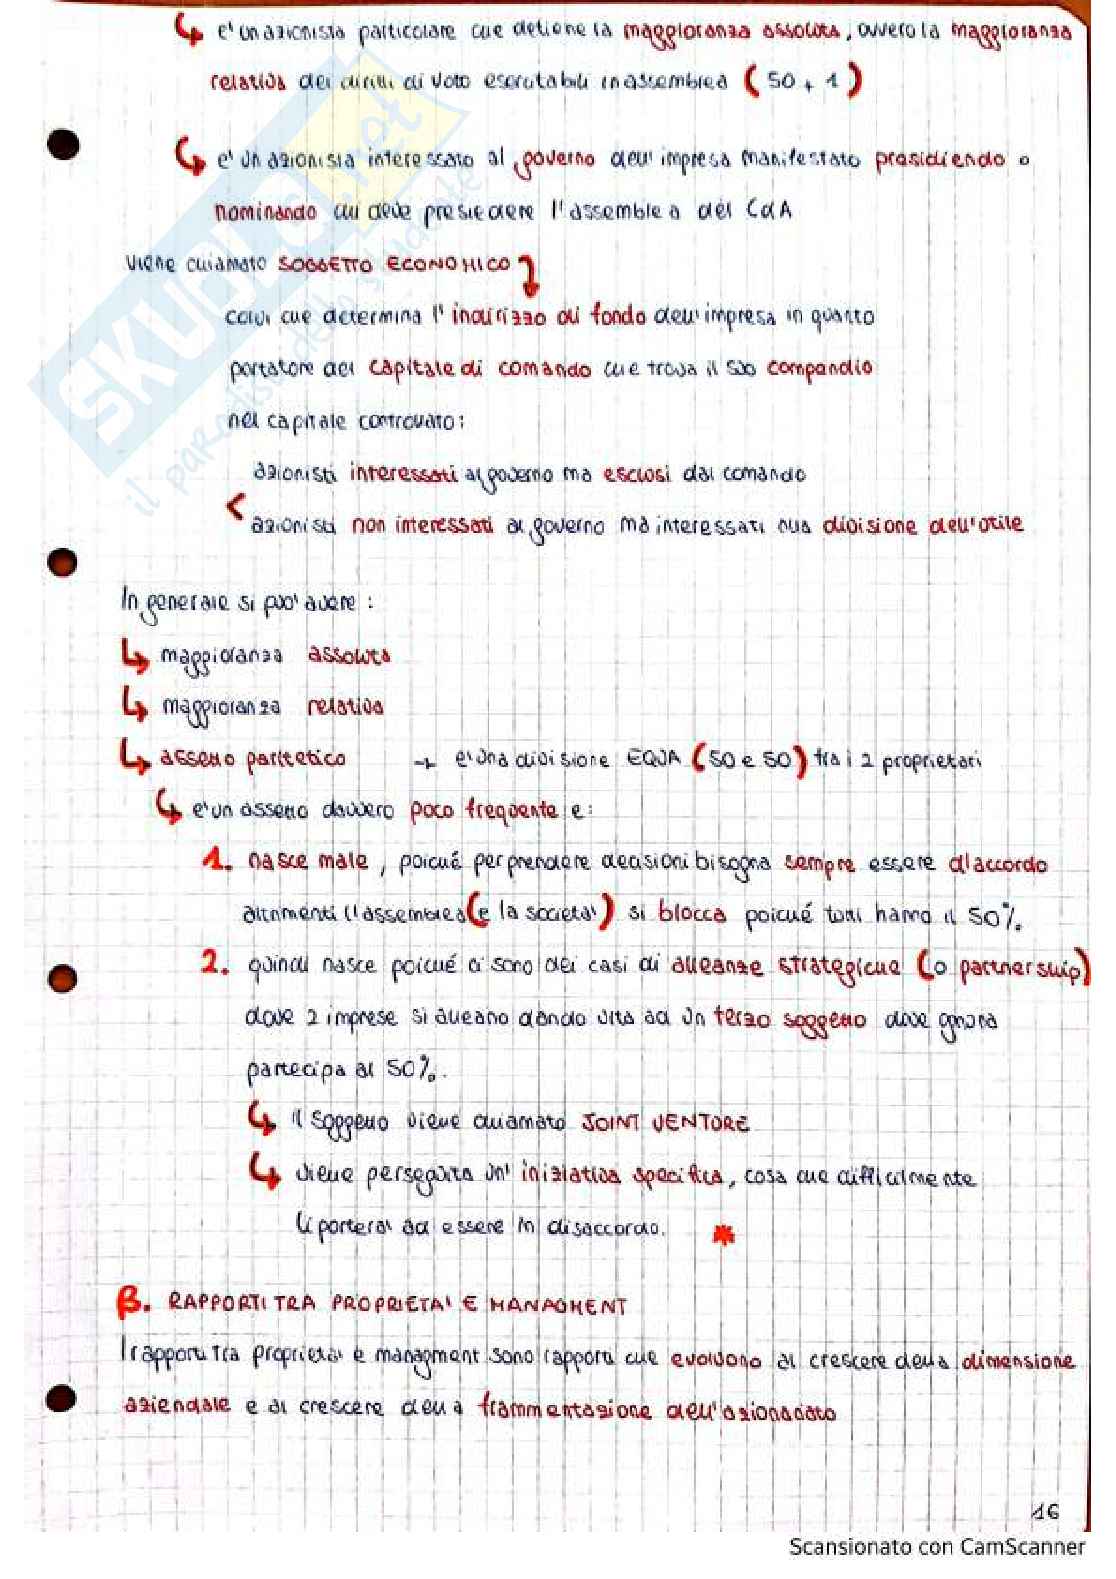 ↳ e' un azionista particolare che detiene la maggioranza assoluta, ovvero la maggioranza
relativa dei diritti di voto esercitabili in assemblea (50 + 1)
↳ e' un azionista interessato al governo dell'impresa manifestato presidiendo o
nominando chi deve presiedere l'assemblea del CdA
viene chiamato SOGGETTO ECONOMICO
colui che determina l'indirizzo di fondo dell'impresa in quanto
portatore del capitale di comando che trova il suo compendio
nel capitale controllato:
azionisti interessati al governo ma esclusi dal comando
< azionisti non interessati al governo ma interessati alla divisione dell'utile
In generale si puo' avere :
↳ maggioranza assoluta
↳ maggioranza relativa
↳ assetto paritetico → e' una divisione EQUA (50 e 50) tra i 2 proprietari
↳ e' un assetto davvero poco frequente e:
1. nasce male, poiché per prendere decisioni bisogna sempre essere d'accordo
altrimenti l'assemblea (e la societa') si blocca poiché tutti hanno il 50%.
2. quindi nasce poiché ci sono dei casi di alleanze strategiche (o partnership)
dove 2 imprese si alleano dando vita ad un terzo soggetto dove ognuna
partecipa al 50%.
↳ il soggetto viene chiamato JOINT VENTURE
↳ viene perseguita un' iniziativa specifica, cosa che difficilmente
li portera' ad essere in disaccordo. *
B. RAPPORTI TRA PROPRIETA' E MANAGMENT
I rapporti tra proprieta' e managment sono rapporti che evolvono al crescere della dimensione
aziendale e al crescere della frammentazione dell'azionariato
16
Scansionato con CamScanner
SKUOLA.net
il paradiso dello studente